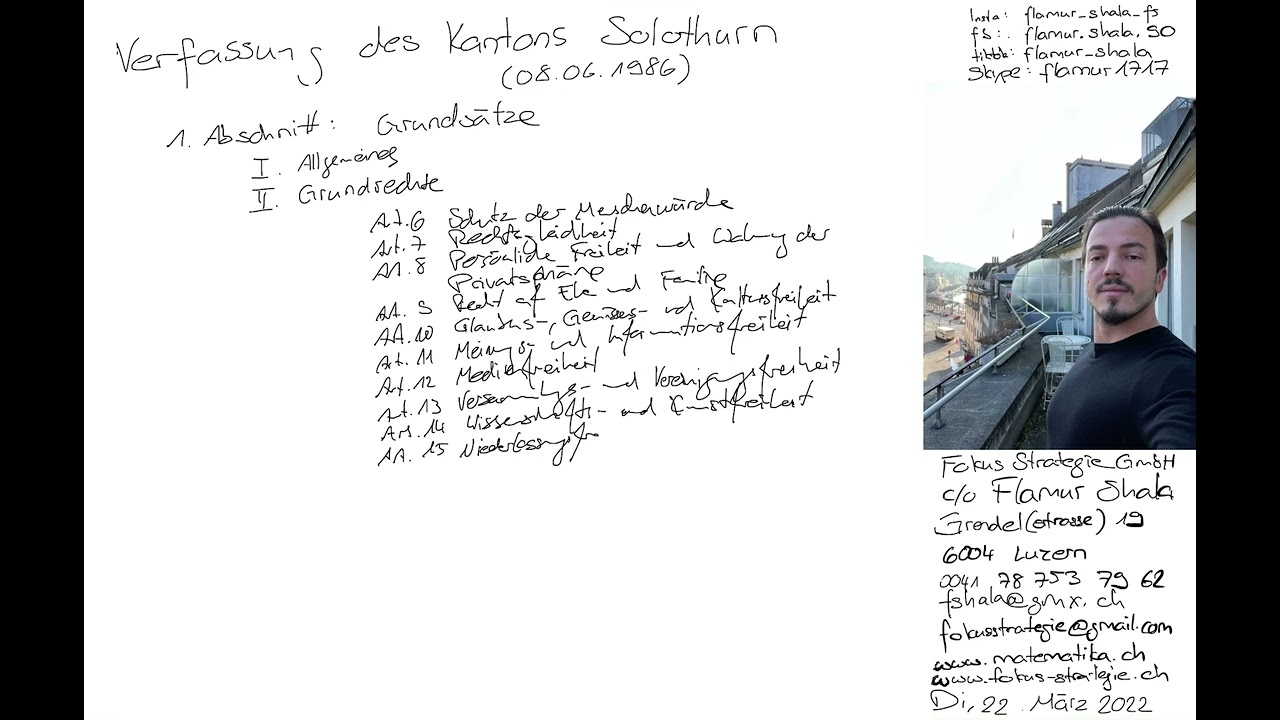 Verfassung des Kantons Solothurn
(08.06.1986)
1. Abschnitt: Grundsätze
I. Allgemeines
II. Grundrechte
Art. 6 Schutz der Menschenwürde
Art. 7 Rechtsgleichheit
Art. 8 Persönliche Freiheit und Wahrung der
Privatsphäre
Art. 9 Recht auf Ehe und Familie
Art. 10 Glaubens-, Gewissens- und Kultusfreiheit
Art. 11 Meinungs- und Informationsfreiheit
Art. 12 Medienfreiheit
Art. 13 Versammlungs- und Vereinigungsfreiheit
Art. 14 Wissenschafts- und Kunstfreiheit
Art. 15 Niederlassungsfr
Insta: flamur_shala_fs
fs:. flamur.shala.50
tiktok: flamur_shala
Skype: flamur1717
Fokus Strategie GmbH
c/o Flamur Shala
Grendel(strasse) 19
6004 Luzern
0041 78 753 79 62
fshala@gmx.ch
fokusstrategie@gmail.com
www.matematika.ch
www.fokus-strategie.ch
Di, 22. März 2022